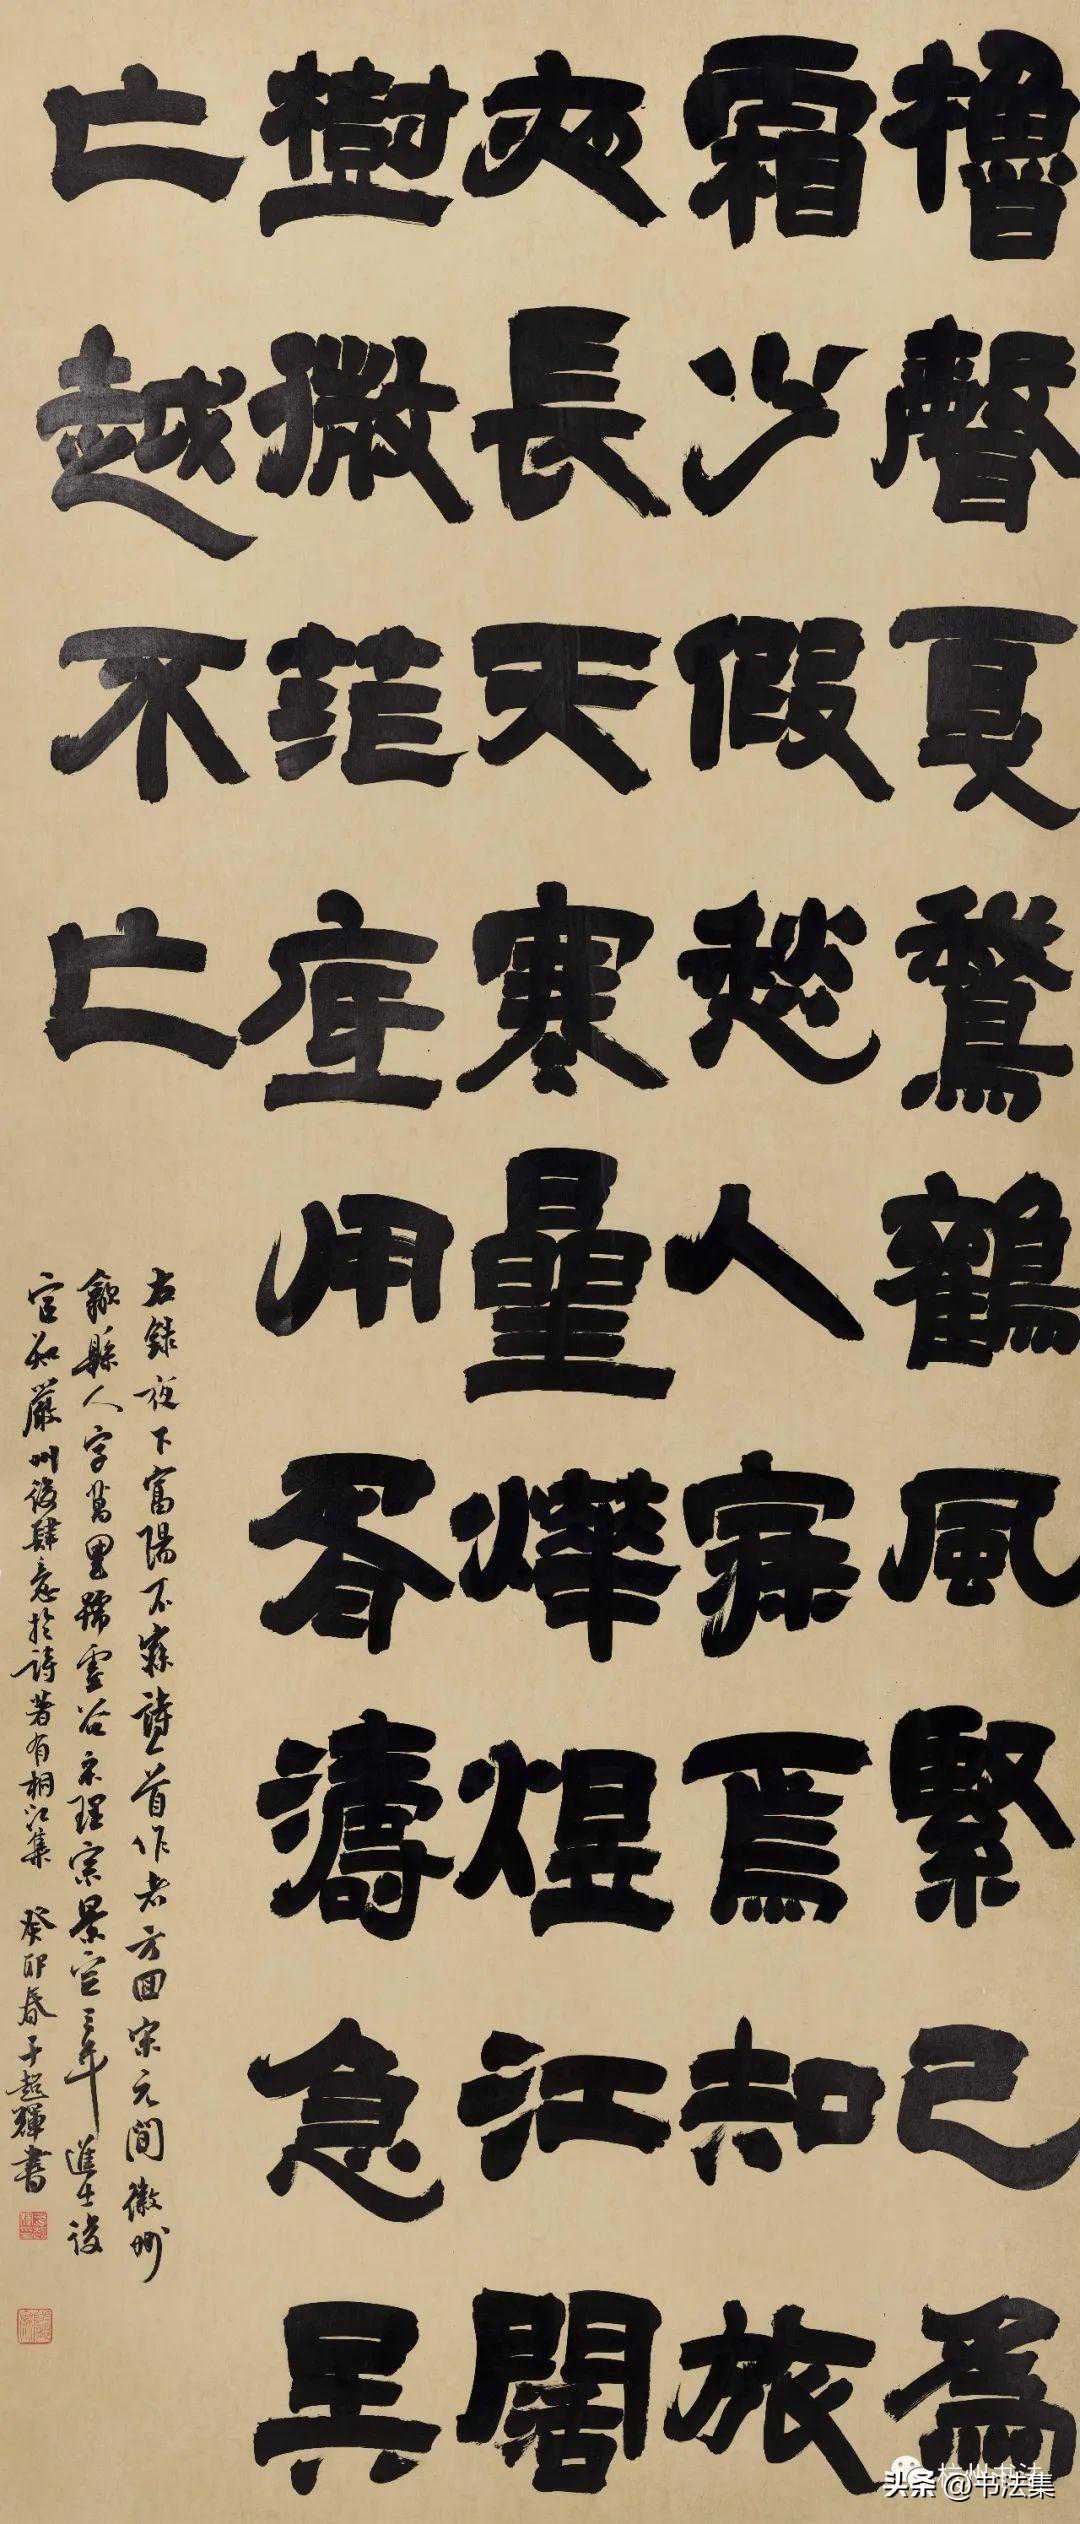 櫓聲戛鶩鶴風緊已為
霜少假愁人寐焉知旅
夜長天寒星燁煜江闊
樹微茫底用胥濤急吳
亡越不亡
右錄夜下富陽不寐詩一首作者方回宋元間徽州
歙縣人字萬里號虛谷宋理宗景定三年進士後
官知嚴州後肆意於詩著有桐江集 癸卯春于超輝書
头条@书法集